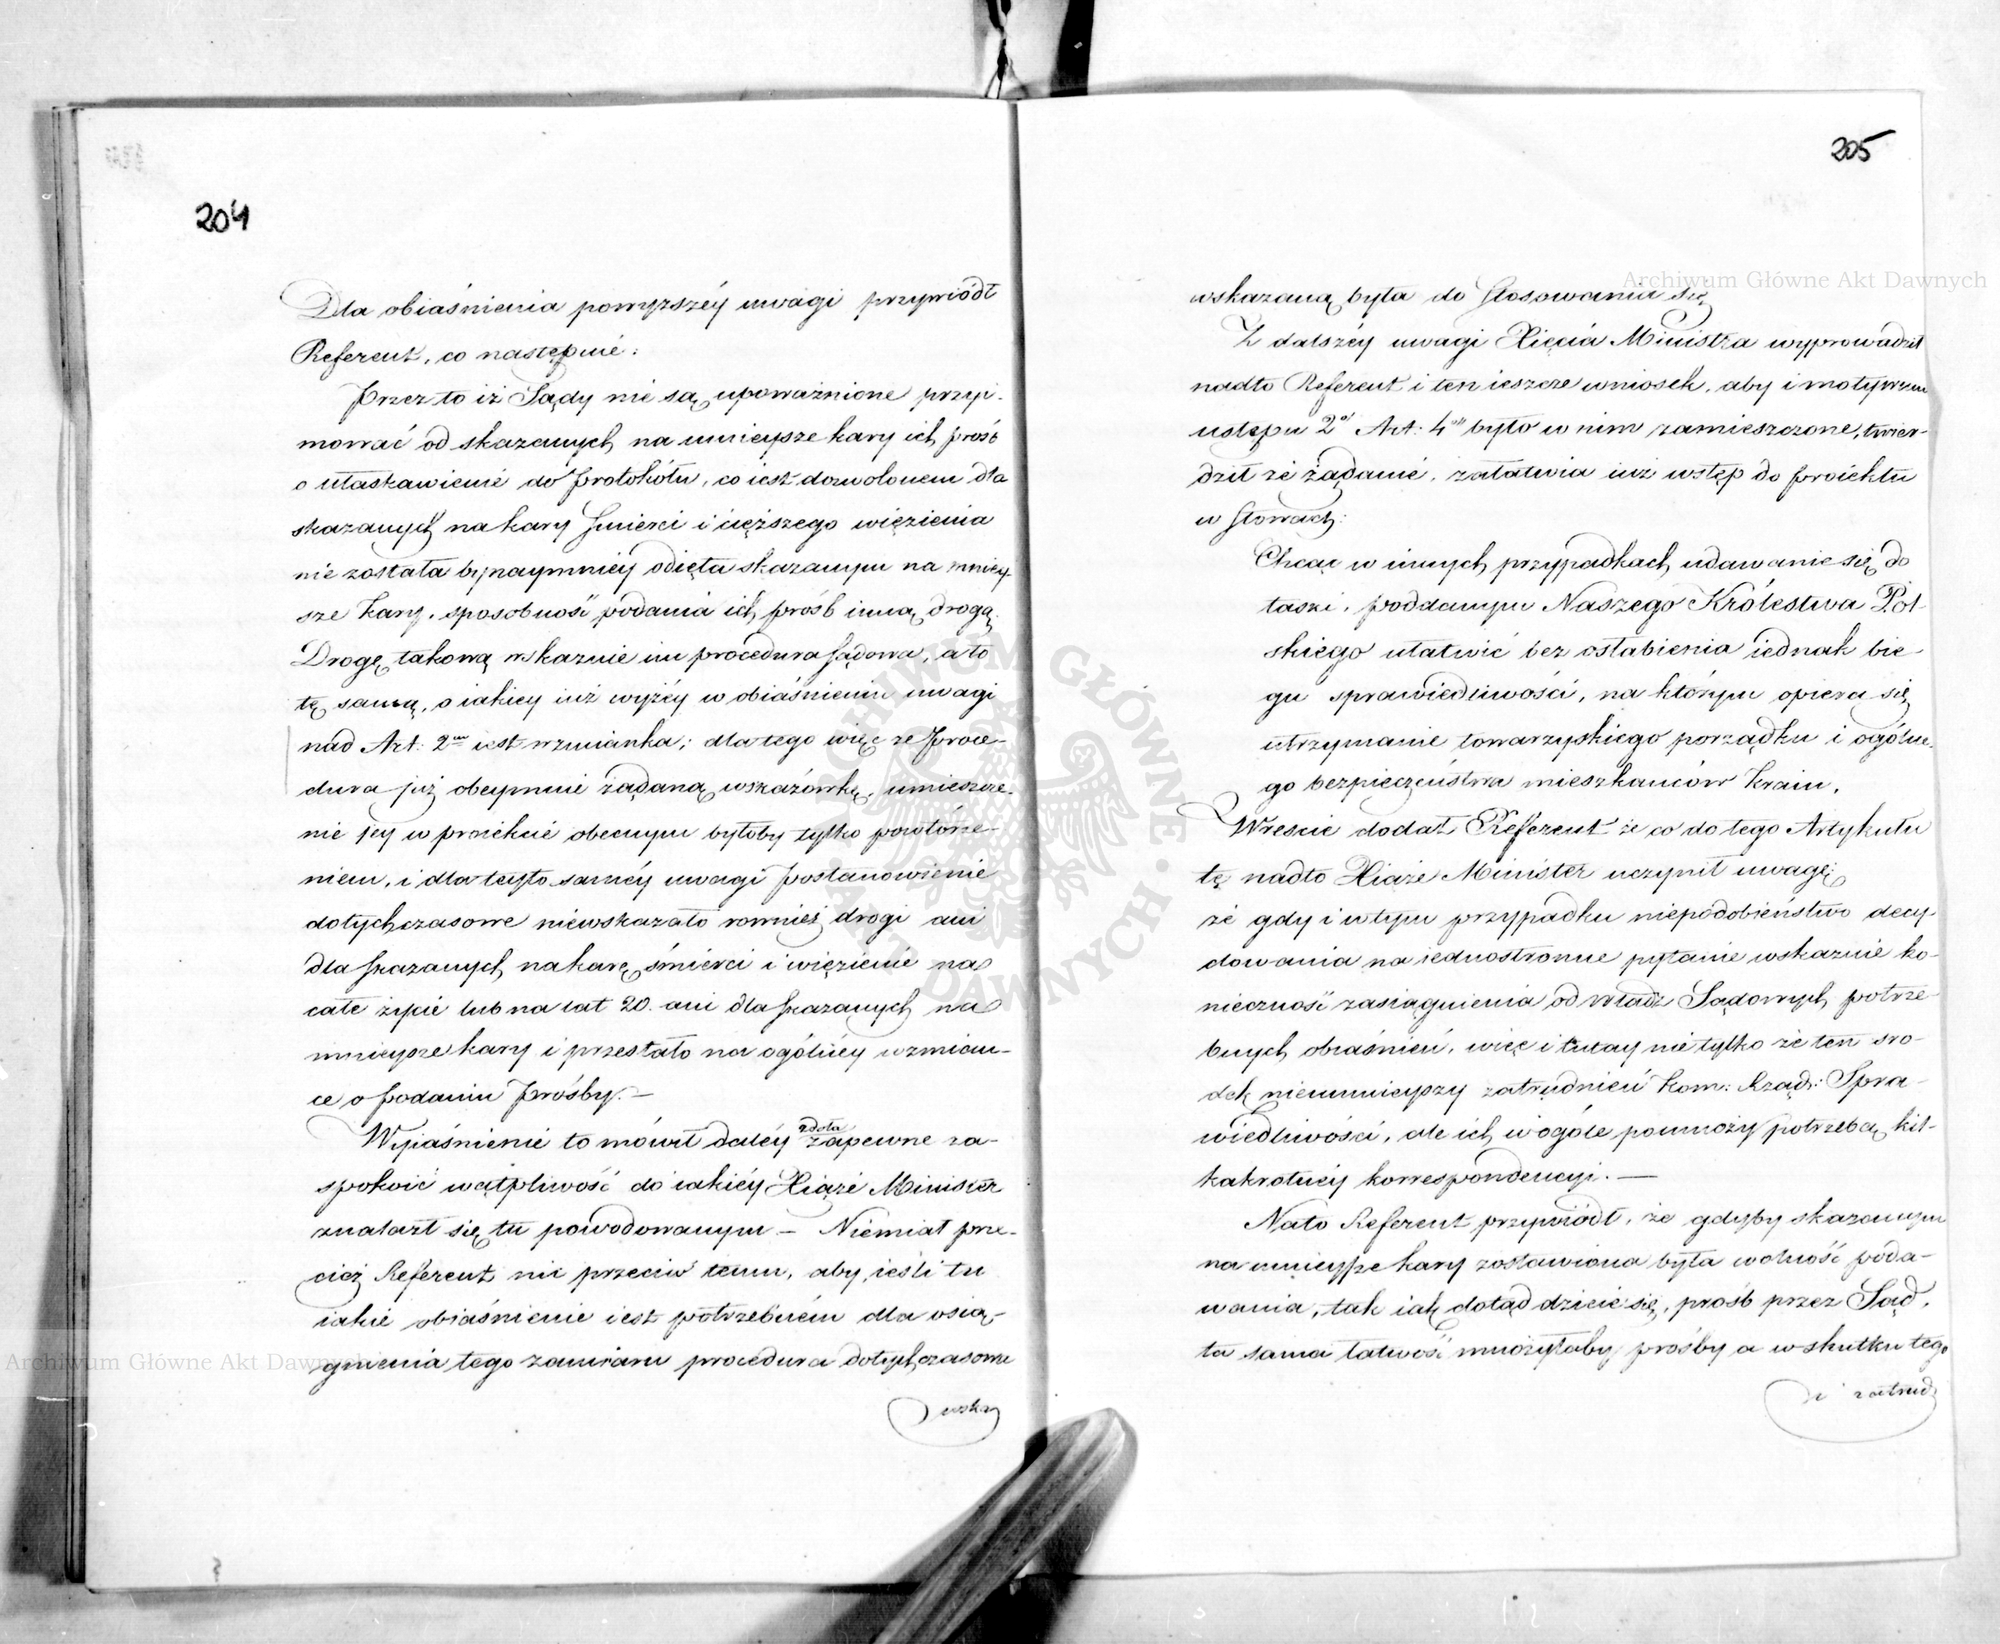 204
Dla obiaśnienia powyzszéy uwagi przywiódł
Referent, co następuie:
Przez to iż Sądy nie są upoważnione przyi-
mować od skazanych na mnieysze kary ich prośb
o ułaskawienie do protokółu, co iest dozwolonem dla
skazanych na kary śmierci i cięższego więzienia
nie została bynaymniéy odięta skazanym na mniey-
sze kary, sposobność podania ich prośb inną drogą.
Drogę takową wskazuie im procedura sądowa, a to
tę samą, o iakiey iuż wyżéy w obiaśnieniu uwagi
nad Art: 2m iest wzmianka; dla tego więc ze proce-
dura już obeymuie żądaną wskazówkę, umieszcze-
nie jey w proiekcie obecnym byłoby tylko powtórze-
niem, i dla teyto saméy uwagi postanowienie
dotychczasowe niewskazało rownież drogi ani
dla skazanych na karę śmierci i więzienie na
całe życie lub na lat 20. ani dla skazanych na
mnieysze kary i przestało na ogólnéy wzmian-
ce o podaniu prośby.—
Wyiaśnienie to mówił daléy zdoła zapewne za-
spokoić wątpliwość do iakiéy Xiąże Minister
znalazł się tu powodowanym — Niemiał prze-
cież Referent nic przeciw temu, aby ieśli tu
iakie obiaśnienie iest potrzebném dla osią-
gnienia tego zamiaru procedura dotychczasowa
wska
205
wskazaną była do stosowania się
Z dalszéy uwagi Xięcia Ministra wyprowadził
nadto Referent i ten ieszcze wniosek, aby i motywum
ustępu 2o Art: 4o było w nim zamieszczone, twier-
dził że żądanie, załatwia iuż wstęp do proiektu
w słowach:
Chcąc w innych przypadkach udawanie się do
łaski, poddanym Naszego Królestwa Pol-
skiego ułatwić bez osłabienia iednak bie-
gu sprawiedliwości, na którym opiera się
utrzymanie towarzyskiego porządku i ogólne-
go bezpieczeństwa mieszkańców kraiu.
Wreście dodał Referent że co do tego Artykułu
tę nadto Xiąże Minister uczynił uwagę;
że gdy i w tym przypadku niepodobieństwo decy-
dowania na iednostronne pytanie wskazuie ko-
nieczność zasiągnienia od władz Sądowych potrze-
bnych obiaśnień, więc i tutay nie tylko że ten śro-
dek nieumnieyszy zatrudnień Kom: Rząd: Spra-
wiedliwości, ale ich w ogóle pomnoży potrzebą kil-
kakrotnéy korrespondencyi. —
Nato Referent przywiódł, że gdyby skazanym
na mnieysze kary zostawiona była wolność poda-
wania, tak iak dotąd dzieie się, prośb przez Sąd,
ta sama łatwość mnożyłaby prośby a w skutku tego
i zatrud
Archiwum Główne Akt Dawnych
Archiwum Główne Akt Dawnych
ARCHIWUM GŁÓWNE AKT DAWNYCH